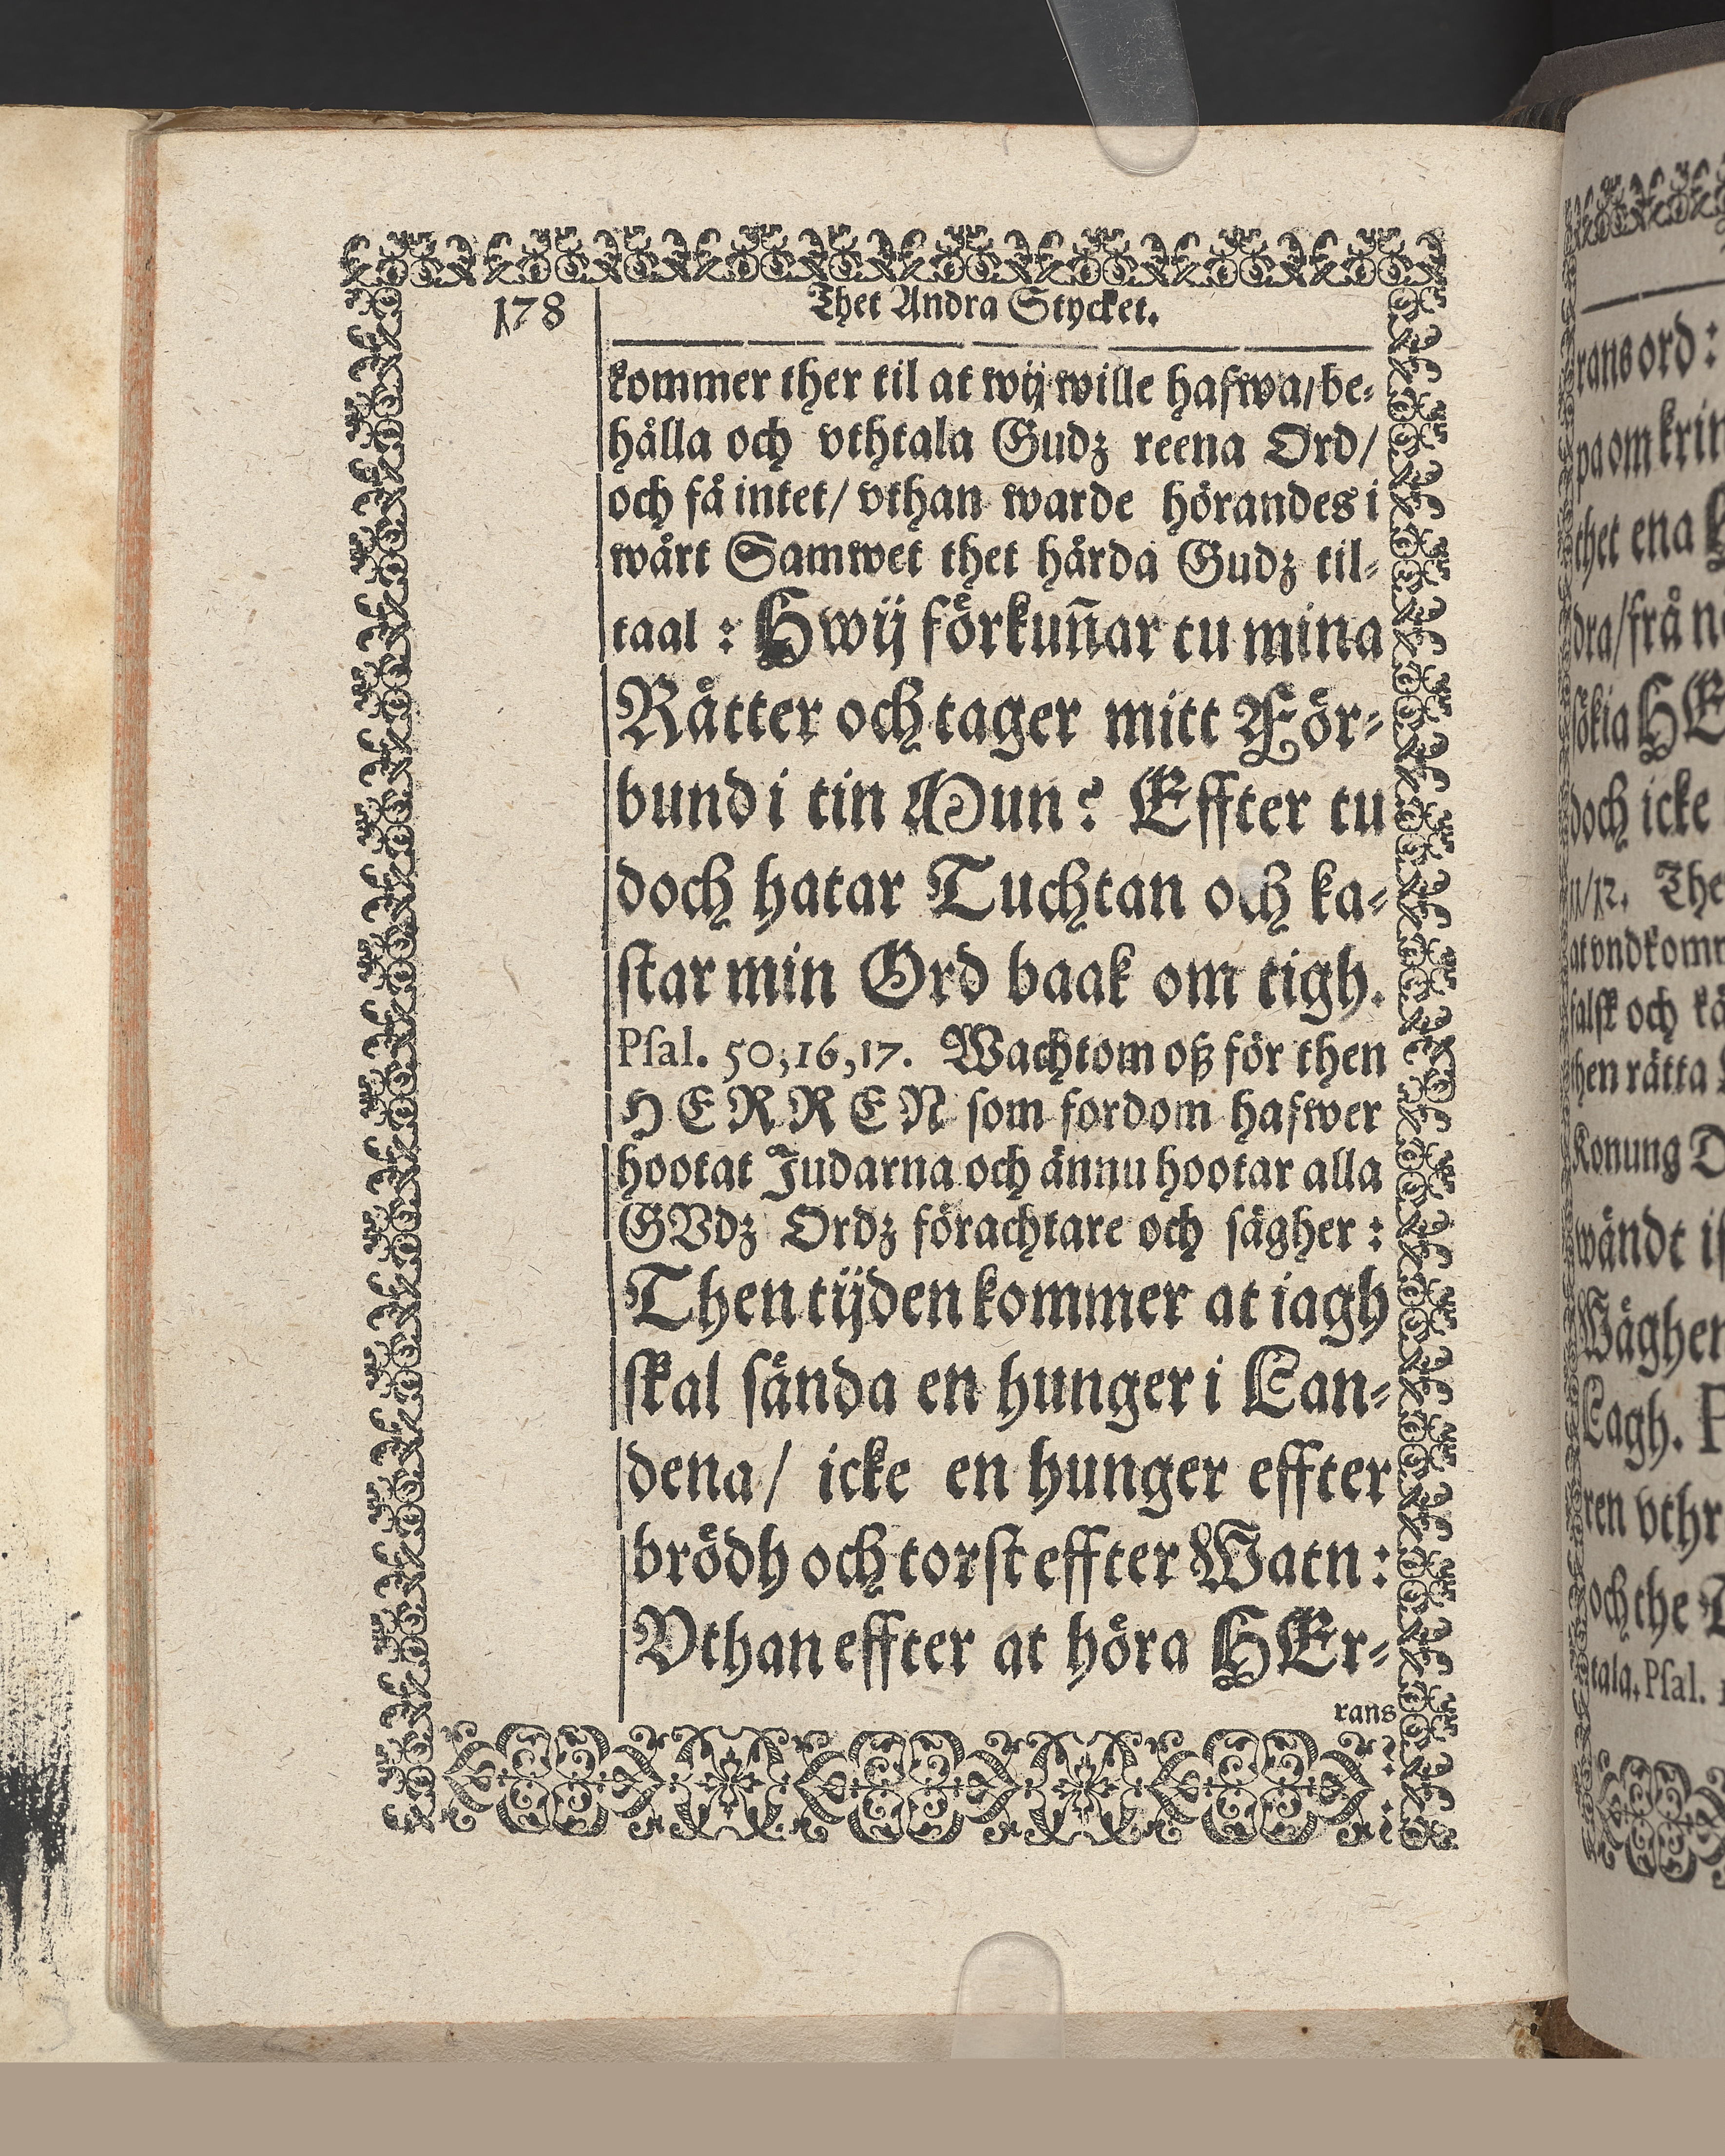 178
Thet Andra Stycket.
kommer ther til at wij wille hafwa/be-
hålla och vthtala Gudz reena Ord/
och få intet/ vthan warde hörandes i
wårt Samwet thet hårda Gudz til-
taal : Hwij förkun̄ar tu mina
Rätter och tager mitt För-
bund i tin Mun? Effter tu
doch hatar Tuchtan och ka-
star min Ord baak om tigh.
Psal. 50,16,17. Wachtom oß för then
HERREN som fordom hafwer
hootat Judarna och ännu hootar alla
GVdz Ordz förachtare och sägher :
Then tijden kommer at iagh
skal sända en hunger i Lan-
dena/ icke en hunger effter
brödh och torst effter Watn :
Vthan effter at höra HEr-
rans
rans ord :
pa om krin
thet ena
dra/frå
sökia HE
doch icke
11/12. The
at vndkomm
falsk och
then rätta
Konung
wändt
Wägher
Lagh.
ren vthr
och the
tala. Psal.